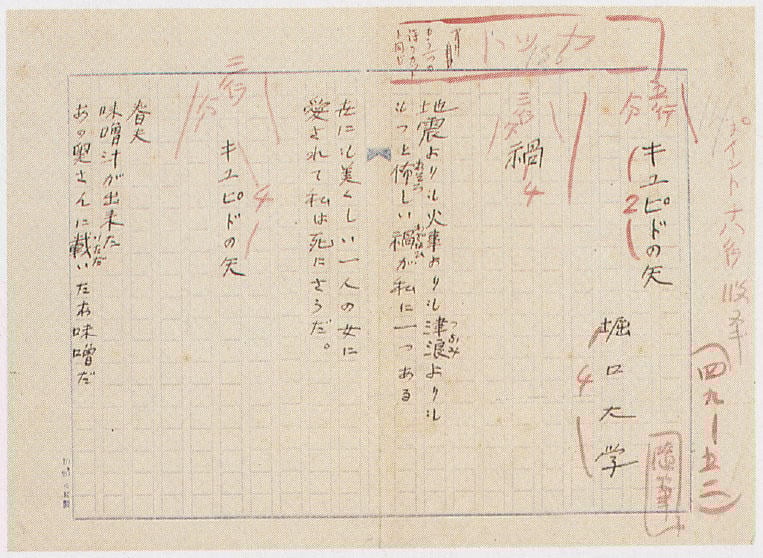 キユピドの矢
堀口大学
禍
地震よりも火事よりも津浪よりも
もつと怖しい禍が私に一つある
世にも美くしい一人の女に
愛されて私は死にさうだ。
キユピドの矢
春夫
味噌汁が出来た
あの奥さんに載いたお味噌だ
カツト
五行
分
2
4
三行
分
4
三行
分
4
ポイント
(四九―五二)
随筆
つなみ